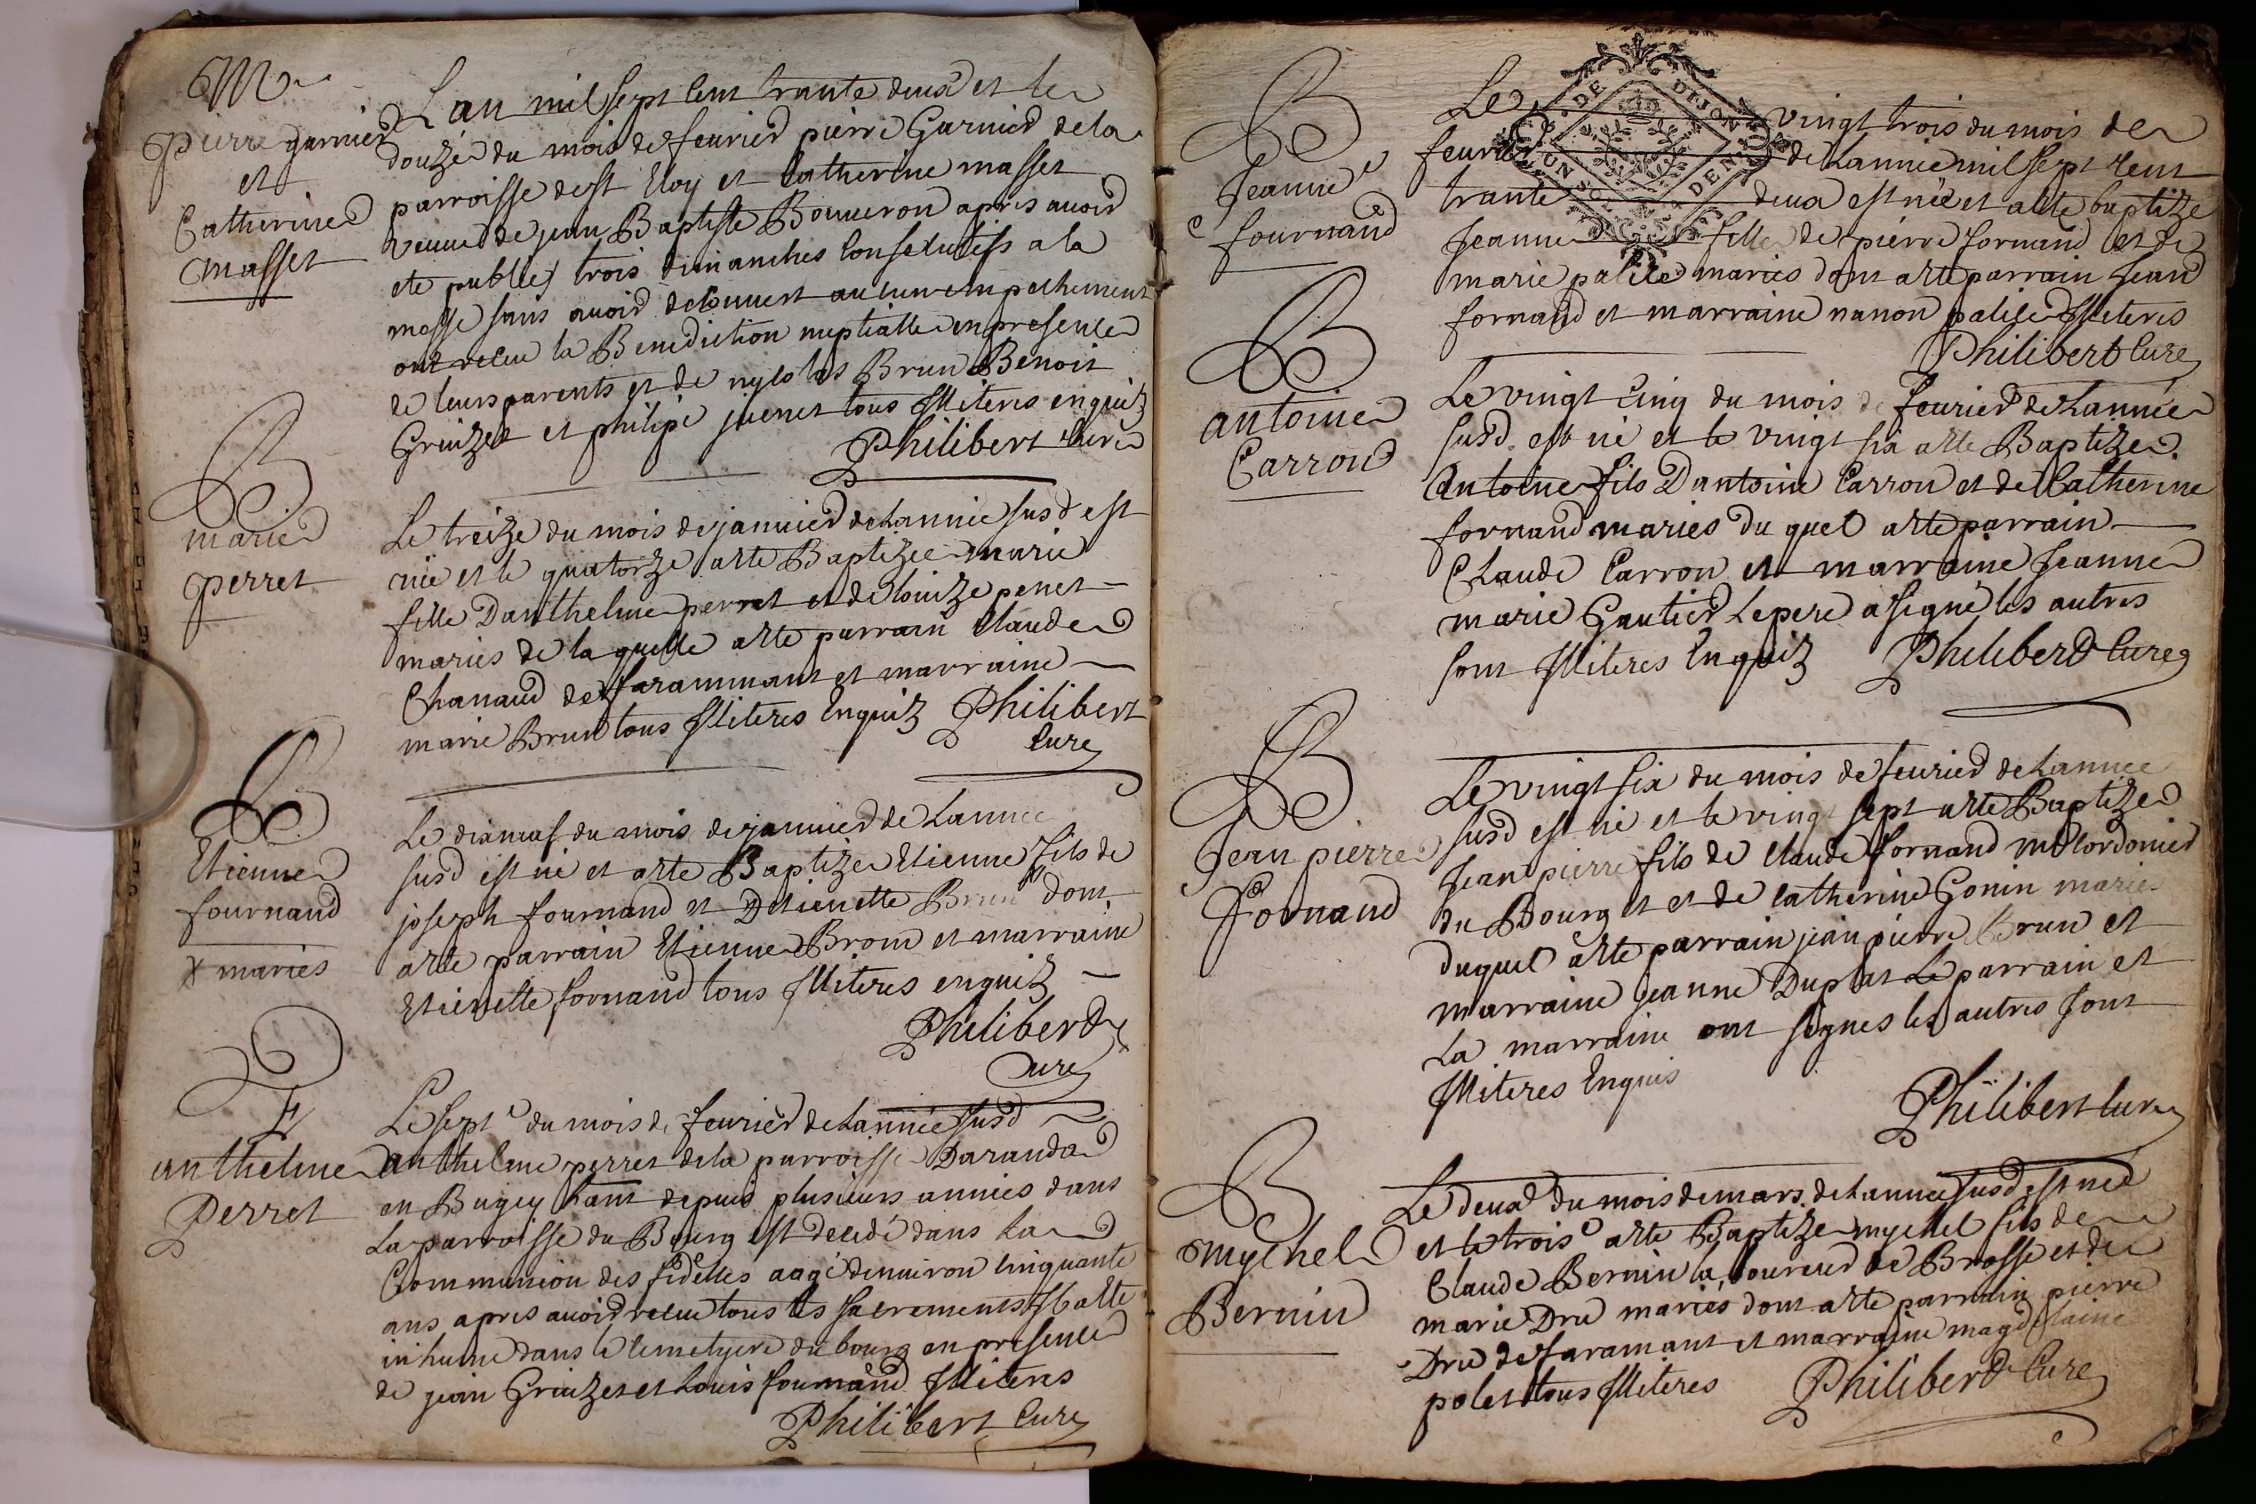 M
Pierre garnier
et
Catherine
masset
L an mil sept cent trante deux et le
douze du mois de feurier pierre Garnier de la
parroisse de st Eloy et Catherine masset
veuue de jean Baptiste Bouueron apres auoir
ete publies trois dimanches consecutifs a la
messe sans auoir decouuert aucun empechement
ont recue la Benediction nuptialle en presence
de leurs parents et de nycolas Brun Benoit
Greuzet et philipe juenet tous Illiteres enquiz
Philibert Cure
B
marie
perret
Le treize du mois de januier de Lannee susd est
née et le quatorze atte Baptizee marie
fille Danthelme perret et de louize penet
maries de la quelle atte parrain Claude
Chanaud de farammant et marraine
marie Brun tous Illiteres Enquiz Philibert
Cure
B
Etienne
fournand
x maries
Le dixneuf du mois de januier de Lannee
susd est né et atte Baptize Etienne fils de
joseph fournand et Detienette Brun x dont
atte parrain Etienne Brom et marraine
Etienette fornand tous Illiteres enquiz
Philibert
Cure
E
anthelme
Perret
Le sept e du mois de feurier de Lannée susd
anthelme perret de la parroisse Daranda
en Bugey etant depuis plusieurs annies dans
La parroisse du Bourg est decedé dans La
Communion des fidelles aagé denuiron cinquante
ans apres auoir recue tous les sacrements Il atte
inhumé dans le cemetyere du bourg en presence
de jean Greuzet et Louis fournand Illiteres
Philibert Cure
B
Jeanne
fournand
DE DIJON
Le vingt trois du mois de
feurier de Lannee mil sept cent
trante deux est née et atte baptize
Jeanne fille de pierre fornand et de
marie palile maries dont atte parrain Jean
fornand et marraine nanon palile Illiteres
Philibert Cure
B
antoine
Carron
Le vingt cinq du mois de feurier de Lannée
susd. est né et le vingt six atte Baptize
Antoine fils Dantoine Carron et de Catherine
fornand maries du quel atte parrain
Claude Carron et marraine Jeanne
marie Gautier Le pere a signé les autres
sont Illiteres Enquiz Philibert Cure
B
Jean pierre
Fornand
Le vingt six du mois de feurier de Lannee
susd est né et le vingt sept atte Baptize
Jean pierre fils de Claude fornand md cordonier
du Bourg et et de catherine Gonin maries
duquel atte parrain jean pierre Brun et
marraine jeanne Duplat Le parrain et
La marraine ont signes les autres sont
Illiteres Enquis
Philibert Cure
B
mychel
Bernin
Le deux du mois de mars de Lannee susd est né
et le trois e atte Baptize mychel fils de
Claude Bernin la boureur de Brosse et de
marie Dru mariés dont atte parrain pierre
Dru de faramant et marraine magdelaine
polet tous Illiteres Philibert Cure